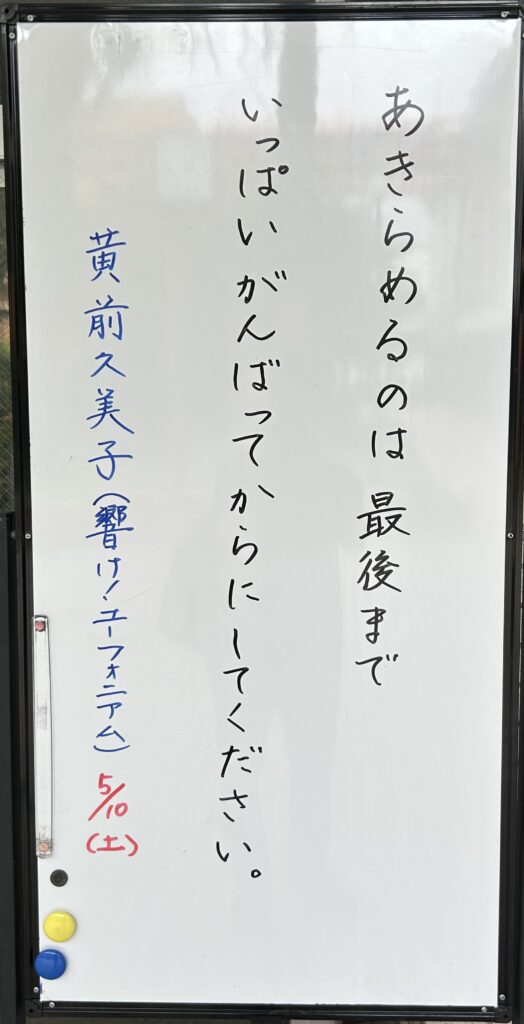 あきらめるのは 最後まで
いっぱいがんばってからにしてください。
黄前久美子(響け!ユーフォニアム) 5/10(土)